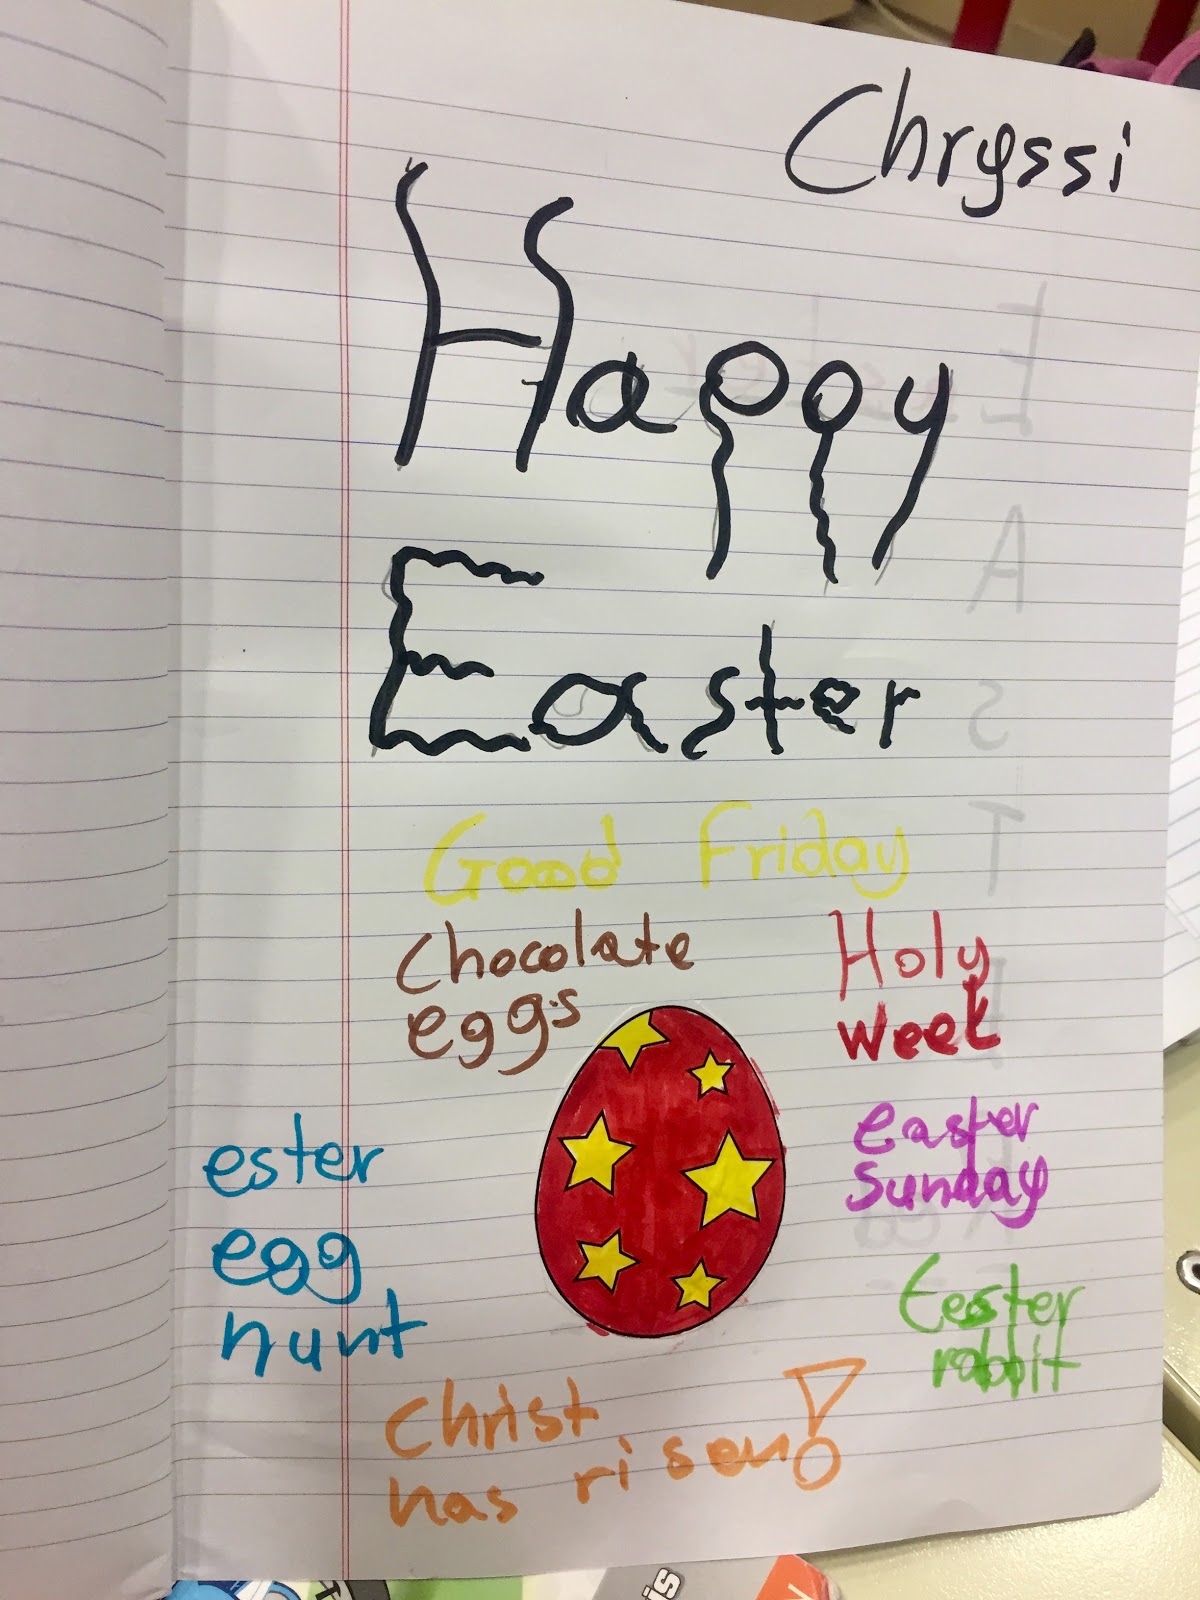 Chryssi
Happy
Easter
Good Friday
Chocolate
eggs
Holy
week
ester
egg
hunt
easter
sunday
Eester
rabbit
Christ
has risen!